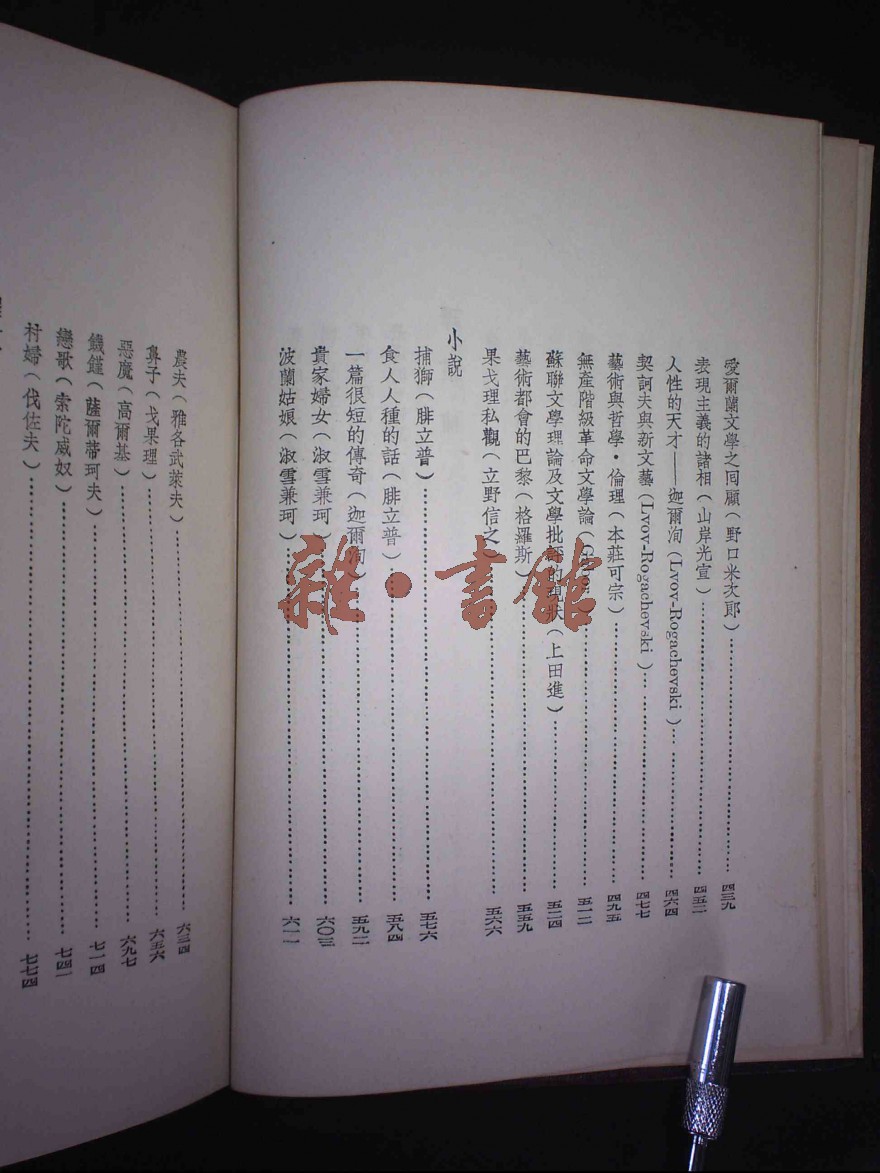 愛爾蘭文學之回顧(野口米次郎)……四三九
表現主義的諸相(山岸光宣)……四五二
人性的天才——迦爾洵(Lvov-Rogachevski)……四六四
契訶夫與新文藝(Lvov-Rogachevski)……四七七
藝術與哲學•倫理(本莊可宗)……四九五
無產階級革命文學論(G)……五一二
蘇聯文學理論及文學批評的現狀(上田進)……五二四
藝術都會的巴黎(格羅斯)……五五九
果戈理私觀(立野信之)……五六六
小說
捕獅(腓立普)……五七六
食人人種的話(腓立普)……五八四
一篇很短的傳奇(迦爾洵)……五九二
貴家婦女(淑雪兼珂)……六〇三
波蘭姑娘(淑雪兼珂)……六一一
農夫(雅各武萊夫)……六三四
鼻子(戈果理)……六五六
惡魔(高爾基)……六九七
饑饉(薩爾蒂珂夫)……七一四
戀歌(索陀威奴)……七四一
村婦(伐佐夫)……七七四
雜•書館